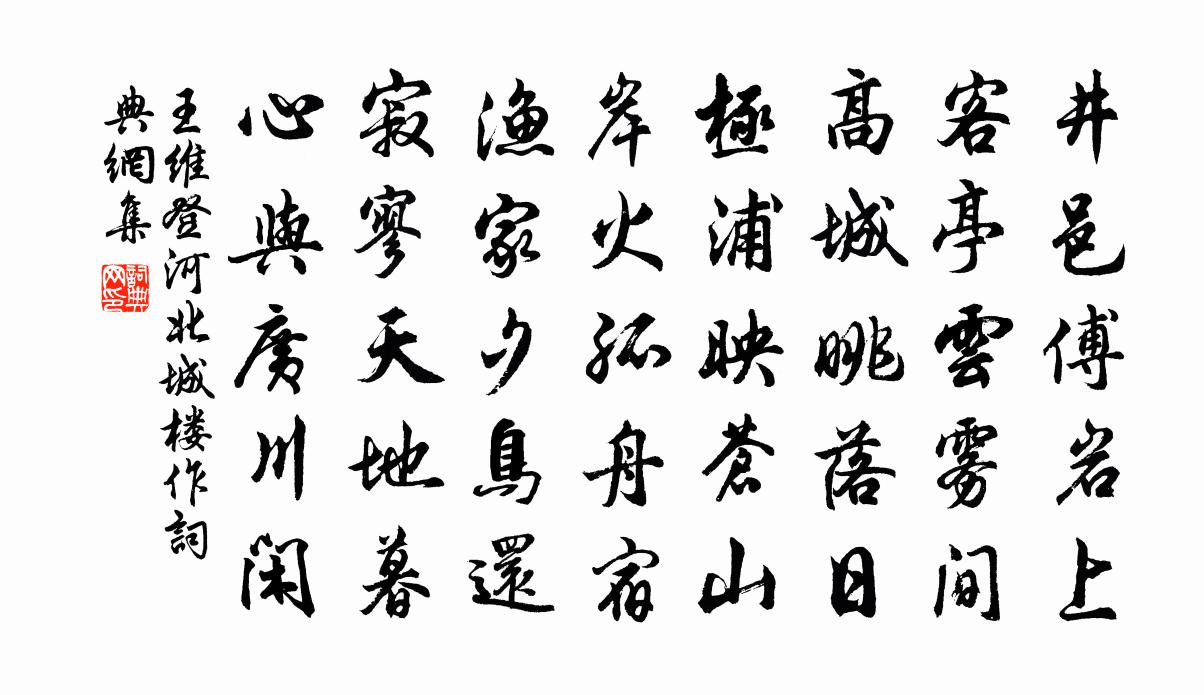 井邑傅岩上
客亭雲雾間
高城眺落日
極浦映蒼山
岸火孤舟宿
漁家夕鳥還
寂寥天地暮
心與廣川閑
王維登河北城楼作詞
典網集
詞典网印